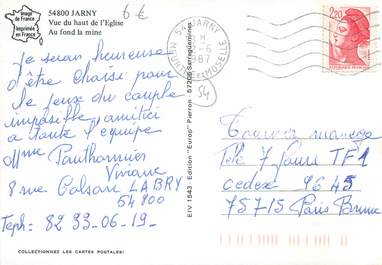 Image de France
Imprimée en France
54800 JARNY
Vue du haut de l'Eglise
Au fond la mine
6 €
je serai heureuse
d'être choisie pour
le jeux du couple
imposible amitiei
a toute l'equipe
Mme Panthonnier
Viviane
8 rue Colson LABRY
54800
Teph: 82 33-06-19-
COLLECTIONNEZ LES CARTES POSTALES!
EIV 1543 - Edition "Europ" Pierron - 57200 Sarreguemines
54 JARNY
MEURTHE ET MOSELLE
1987
2,20
54
Tournez manege
Télé 7 Jours TF1
Cedex 9645
75715 Paris Brune